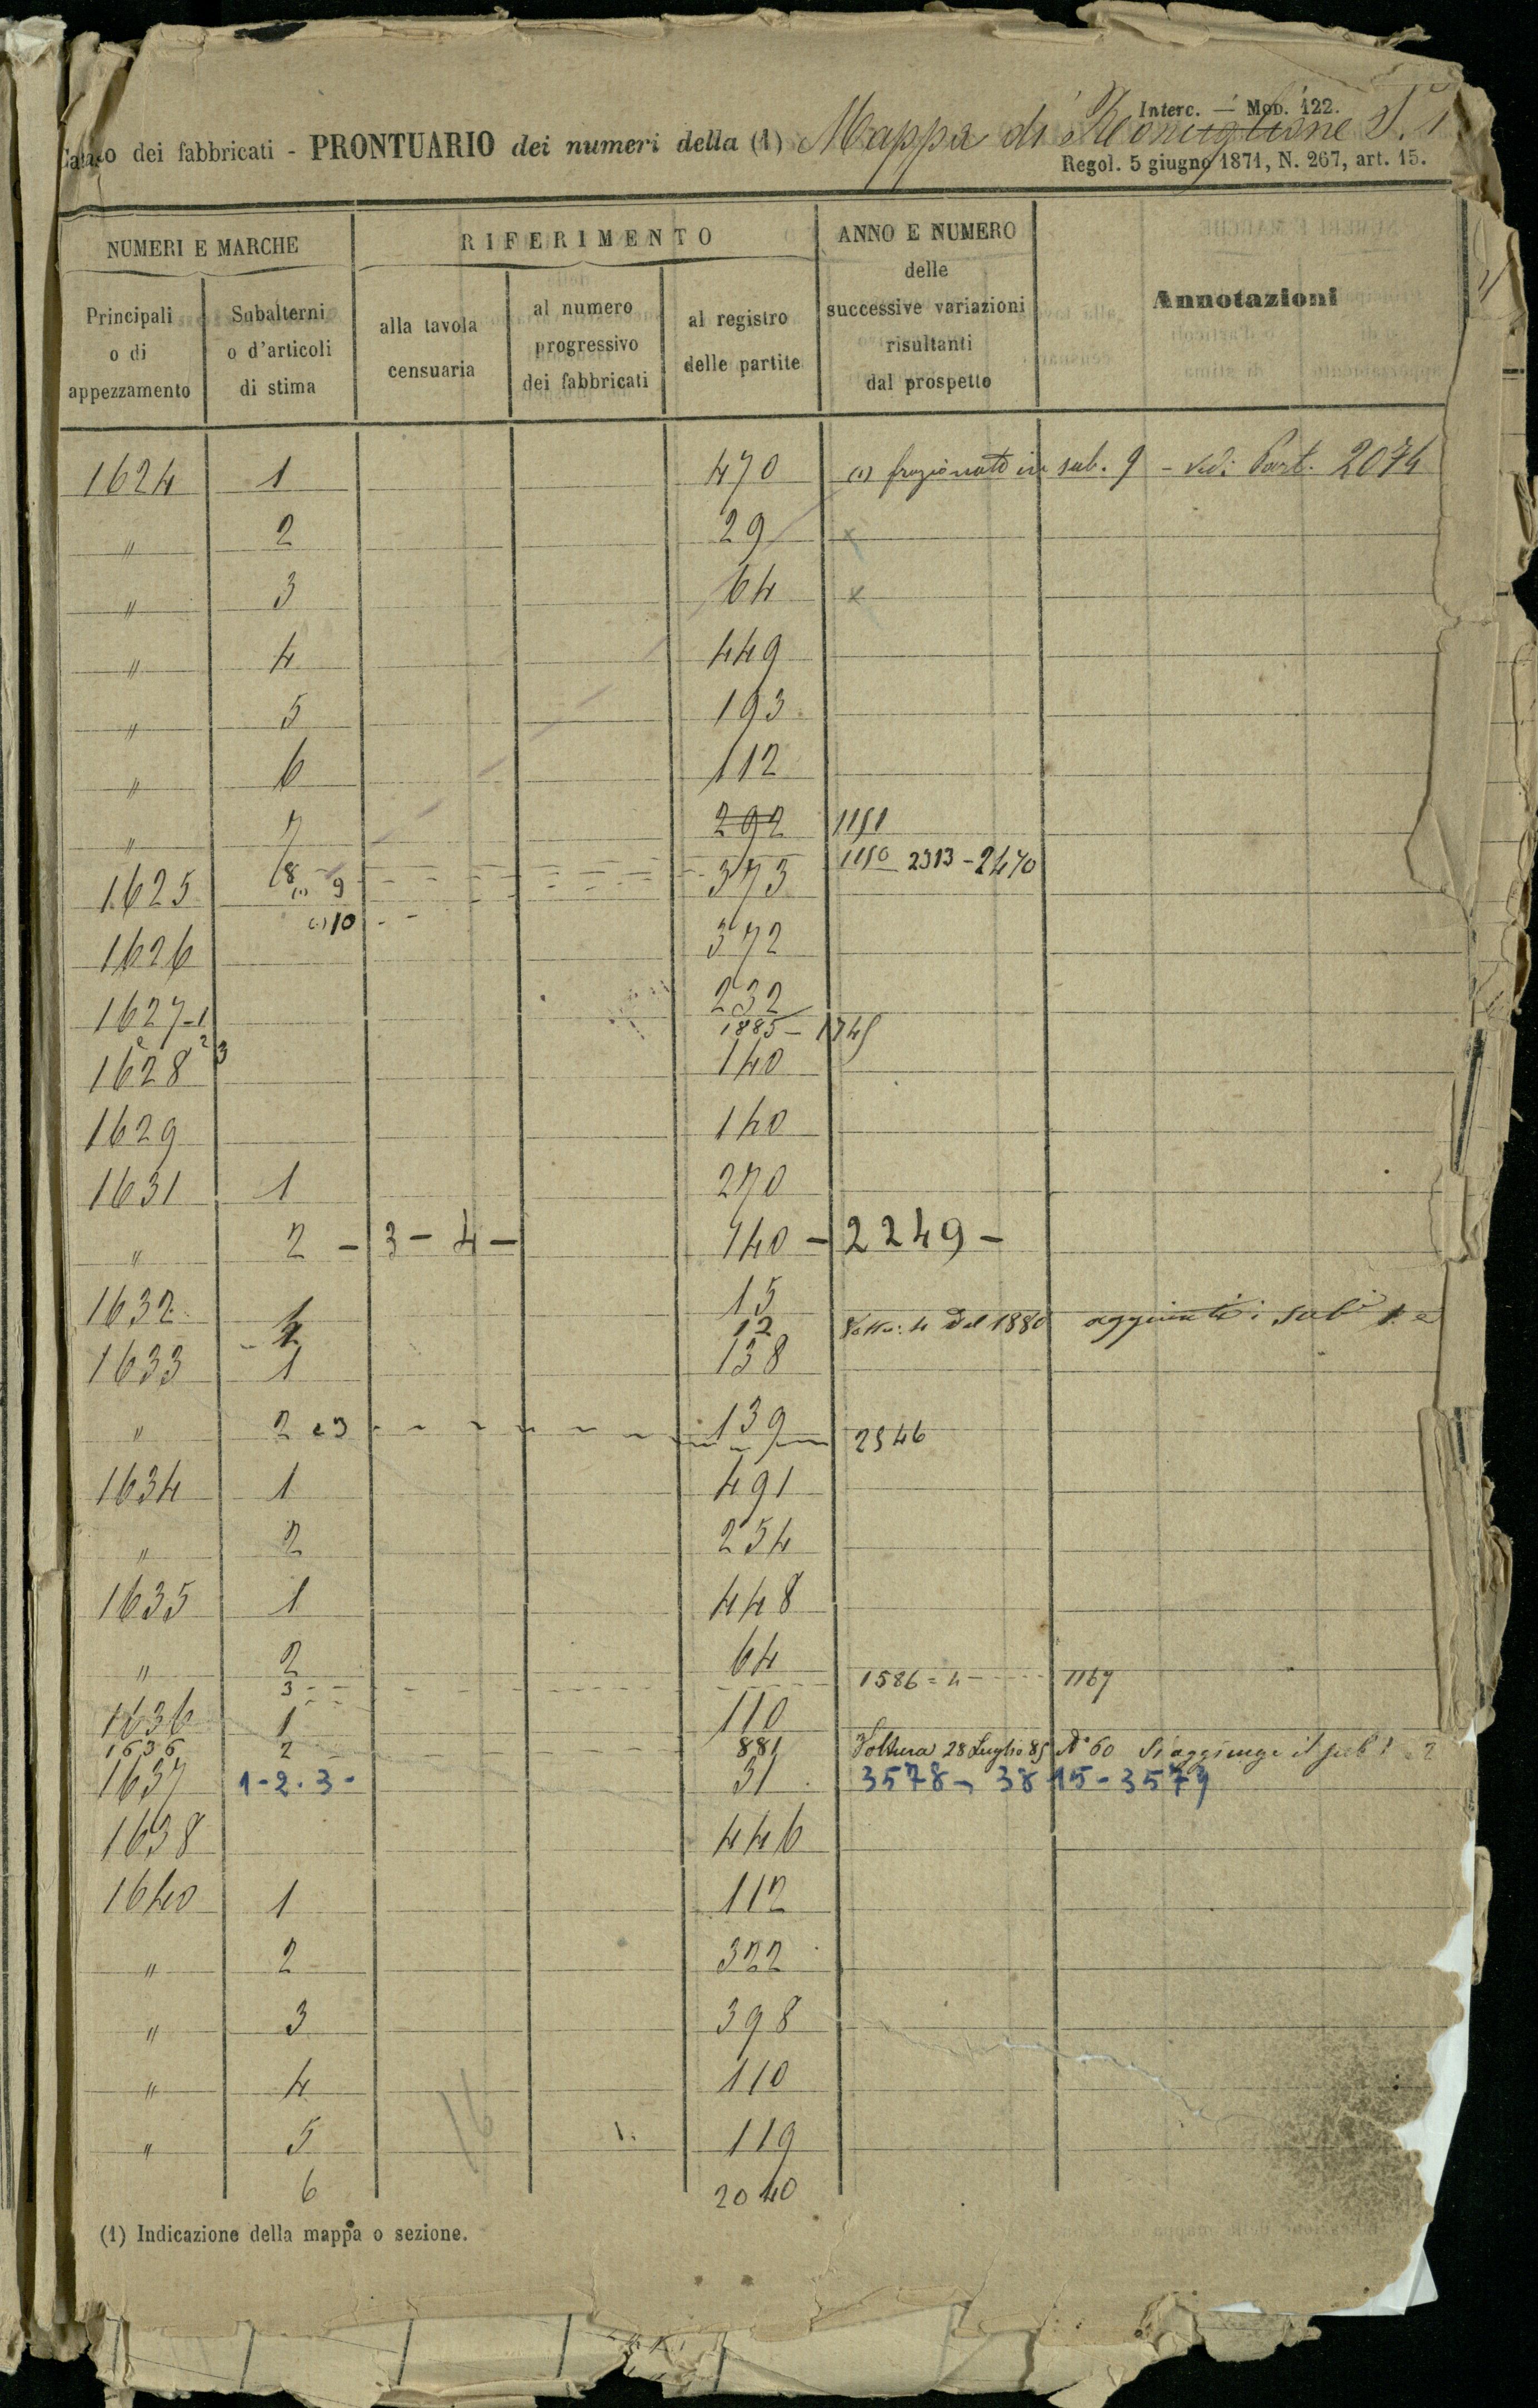 Interc. — Mod. 122.
Catasto dei fabbricati - PRONTUARIO dei numeri della (1) Mappa di Ronciglione S. 1
Regol. 5 giugno 1871, N. 267, art. 15.
NUMERI E MARCHE RIFERIMENTO ANNO E NUMERO delle successive variazioni risultanti dal prospetto Annotazioni
Principali o di appezzamento Subalterni o d'articoli di stima alla tavola censuaria al numero progressivo dei fabbricati al registro delle partite
1624 1 470 (1) frazionato in sub. 9 - Vedi Part. 2074
" 2 29 x
" 3 64 x
" 4 449
" 5 193
" 6 112
" 7 292 1151
8 1150 2313 - 2470
1625 (1) 9 373
(1) 10
1626 372
1627-1 232
2 3 1885 - 1745
1628 140
1629 140
1631 1 270
" 2 - 3 - 4 - 140 - 2249 -
1632 1 15
2 12 4 del 1880 aggiunti i sub i
1633 1 138
" 2 e 3 139 2546
1634 1 491
" 2 254
1635 1 448
" 2 64
3 1586 = 4 1167
1636 1 110
1636 2 881 Voltura 28 Luglio 85 N° 60 Si aggiunge il sub 1 2
1637 1-2-3- 31 3578 - 3815 - 3579
1638 446
1640 1 112
" 2 322
" 3 398
" 4 110
" 5 119
6 2040
16
(1) Indicazione della mappa o sezione.